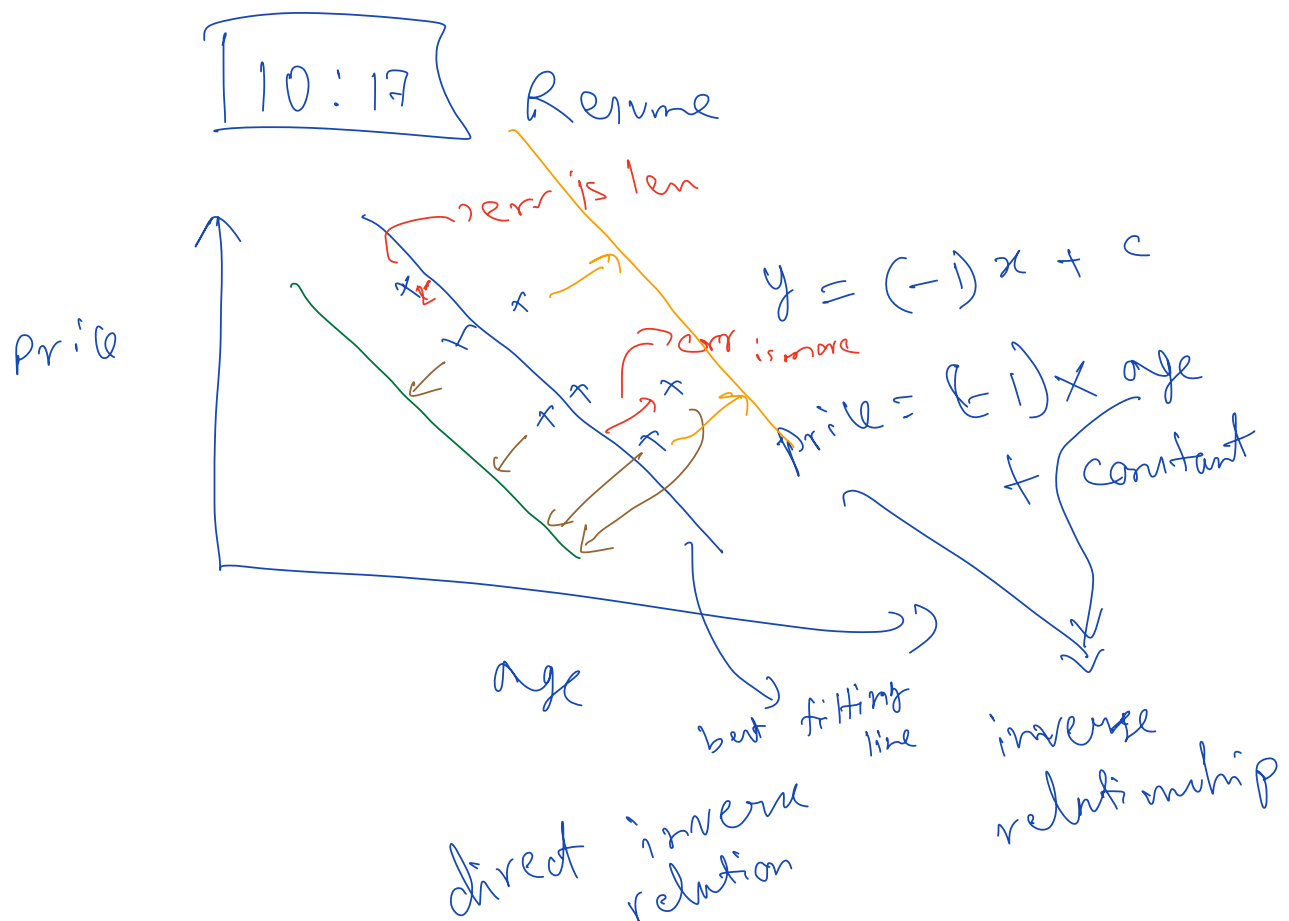 10:17
Resume
err is len
y = (-1)x + c
err is more
price
price = (-1) x age
+ constant
age
best fitting
line
inverse
relationship
direct inverse
relation